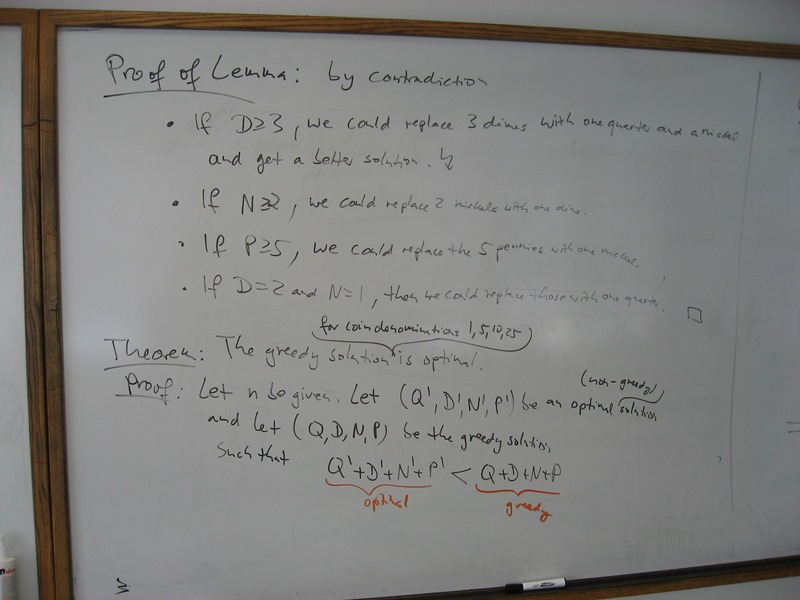 Proof of Lemma: by contradiction
• If D≥3, we could replace 3 dimes with one quarter and a nickel
and get a better solution. ↯
• If N≥2, we could replace 2 nickels with one dime.
• If P≥5, we could replace the 5 pennies with one nickel.
• If D=2 and N=1, then we could replace those with one quarter. □
for coin denominations 1,5,10,25
Theorem: The greedy solution is optimal.
(non-greedy)
Proof: Let n be given. Let (Q',D',N',P') be an optimal solution
and let (Q,D,N,P) be the greedy solution,
such that Q'+D'+N'+P' < Q+D+N+P
optimal greedy